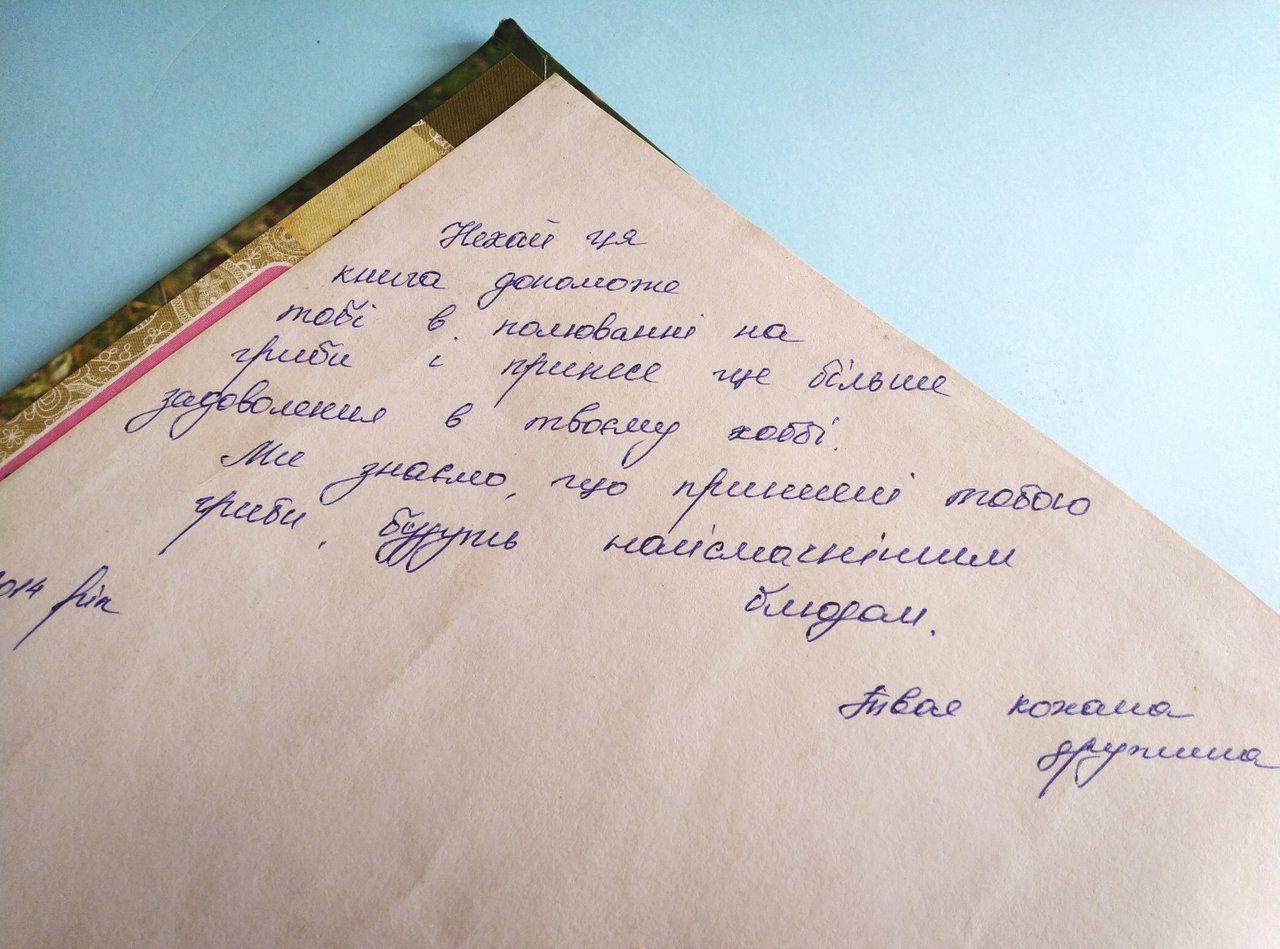 Нехай ця
книга допоможе
тобі в полюванні на
гриби і принесе ще більше
задоволення в твоєму хоббі.
Ми знаємо, що принесені тобою
гриби, будуть найсмачнішим
блюдом.
2014 рік
Твоя кохана
дружина